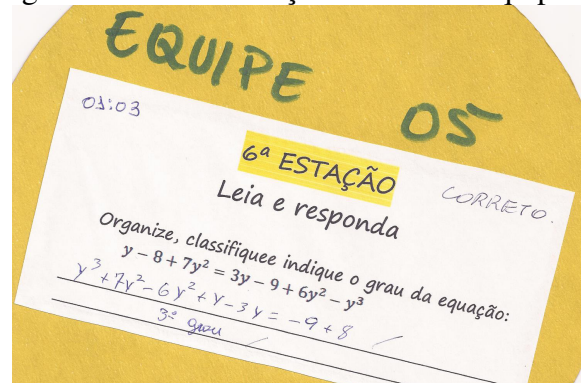 EQUIPE 05
01:03
6ª ESTAÇÃO
CORRETO.
Leia e responda
Organize, classifiquee indique o grau da equação:
y – 8 + 7y² = 3y – 9 + 6y² – y³
y³ + 7y² – 6y² + y – 3y = –9 + 8
3º grau